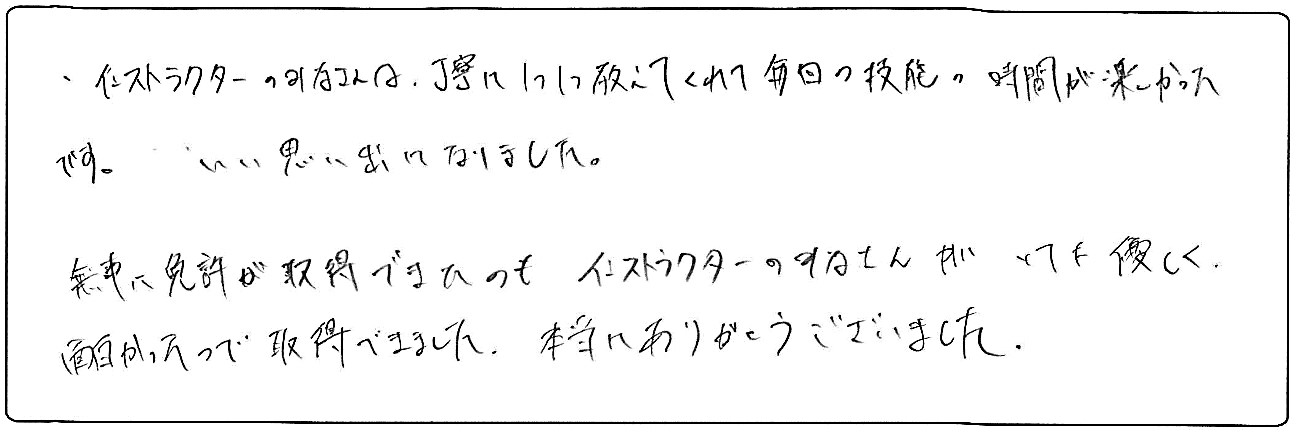 ・インストラクターのみなさんは、丁寧に1つ1つ教えてくれて毎回の技能の時間が楽しかった
です。いい思い出になりました。
無事に免許が取得できたのもインストラクターのみなさんがとても優しく、
面白かったので取得できました。本当にありがとうございました。